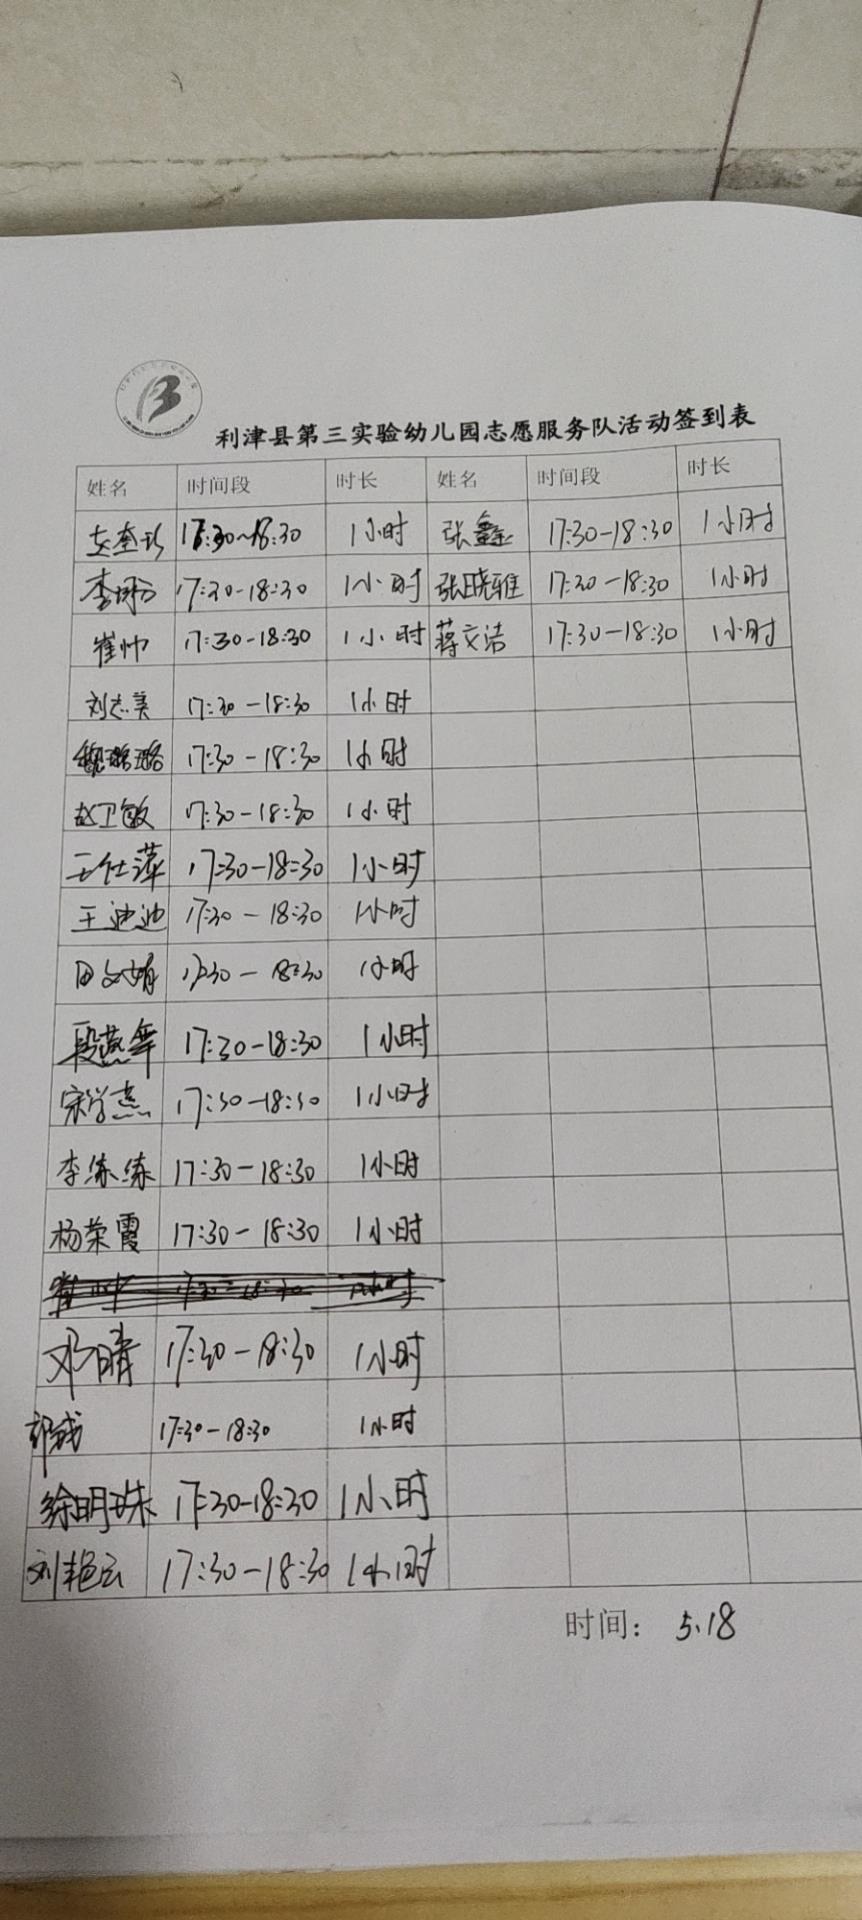 利津县第三实验幼儿园志愿服务队活动签到表
姓名 时间段 时长 姓名 时间段 时长
17:30~18:30 1小时 张鑫 17:30-18:30 1小时
李 17:30-18:30 1小时 张晓雅 17:30-18:30 1小时
崔帅 17:30-18:30 1小时 蒋文洁 17:30-18:30 1小时
刘志美 17:30-18:30 1小时
魏璐璐 17:30-18:30 1小时
赵卫敏 17:30-18:30 1小时
王仕萍 17:30-18:30 1小时
王迪迪 17:30-18:30 1小时
田文婧 17:30-18:30 1小时
段燕 17:30-18:30 1小时
宋学燕 17:30-18:30 1小时
李练练 17:30-18:30 1小时
杨荣霞 17:30-18:30 1小时
邓晴 17:30-18:30 1小时
17:30-18:30 1小时
徐明珠 17:30-18:30 1小时
刘艳云 17:30-18:30 1小时
时间： 5.18